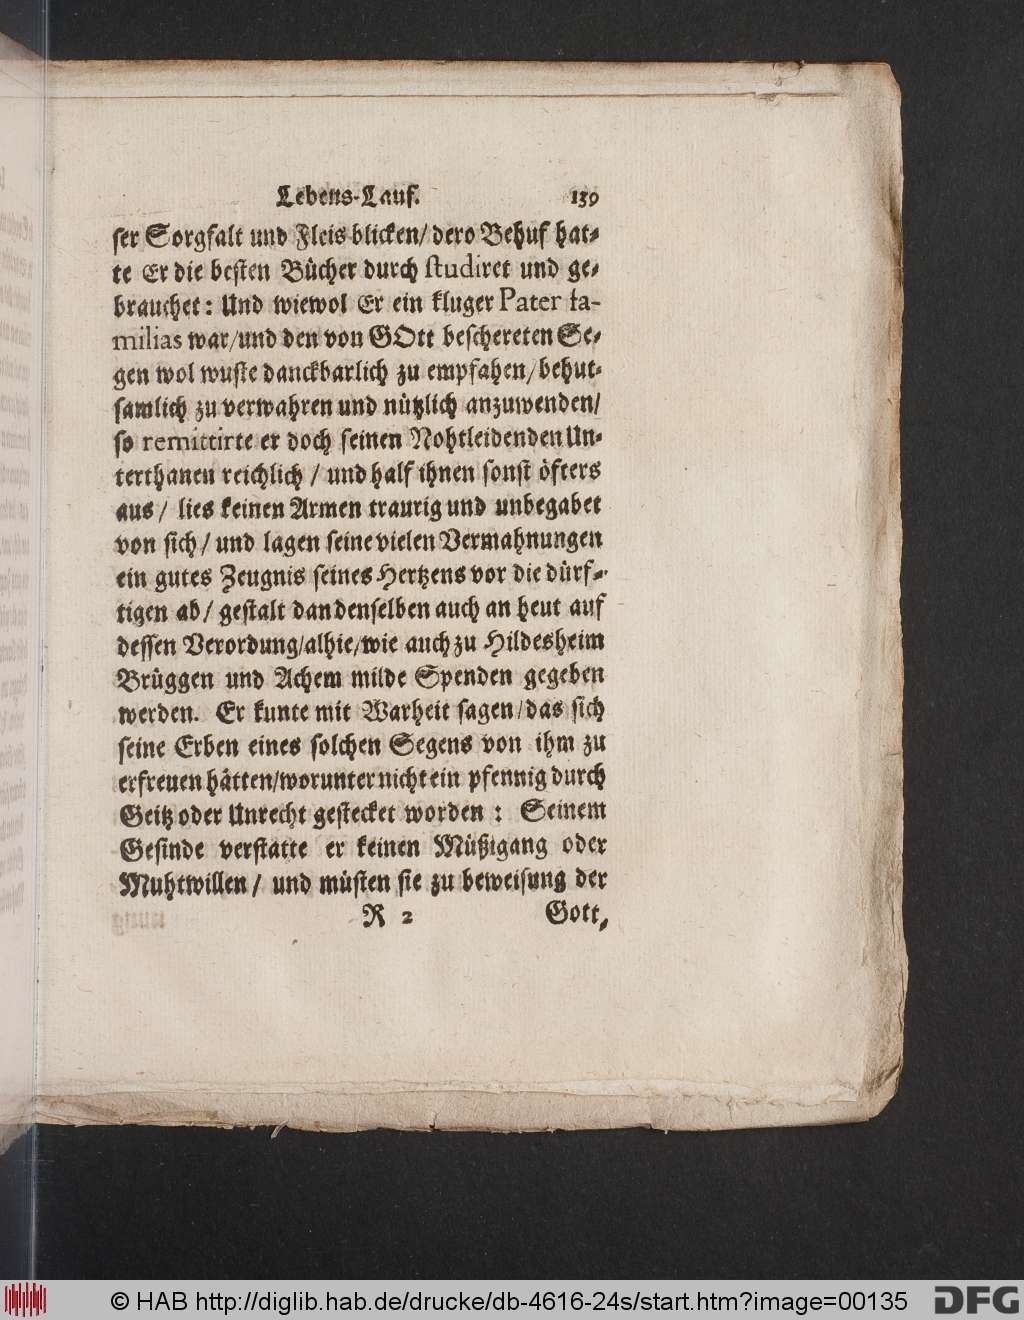 Lebens-Lauf. 139
ser Sorgfalt und Fleis blicken/ dero Behuf hat-
te Er die besten Bücher durch studiret und ge-
brauchet: Und wiewol Er ein kluger Pater fa-
milias war/und den von GOtt beschereten Se-
gen wol wuste danckbarlich zu empfahen/behut-
samlich zu verwahren und nützlich anzuwenden/
so remittirte er doch seinen Nohtleidenden Un-
terthanen reichlich / und half ihnen sonst öfters
aus / lies keinen Armen traurig und unbegabet
von sich / und lagen seine vielen Vermahnungen
ein gutes Zeugnis seines Hertzens vor die dürf-
tigen ab/ gestalt dan denselben auch an heut auf
dessen Verordung/alhie/wie auch zu Hildesheim
Brüggen und Achem milde Spenden gegeben
werden. Er kunte mit Warheit sagen/das sich
seine Erben eines solchen Segens von ihm zu
erfreuen hätten/worunter nicht ein pfennig durch
Geitz oder Unrecht gestecket worden : Seinem
Gesinde verstatte er keinen Müßigang oder
Muhtwillen / und müsten sie zu beweisung der
R 2 Gott,
© HAB http://diglib.hab.de/drucke/db-4616-24s/start.htm?image=00135 DFG